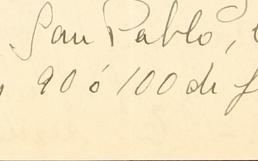 San Pablo,
90 ó 100 de